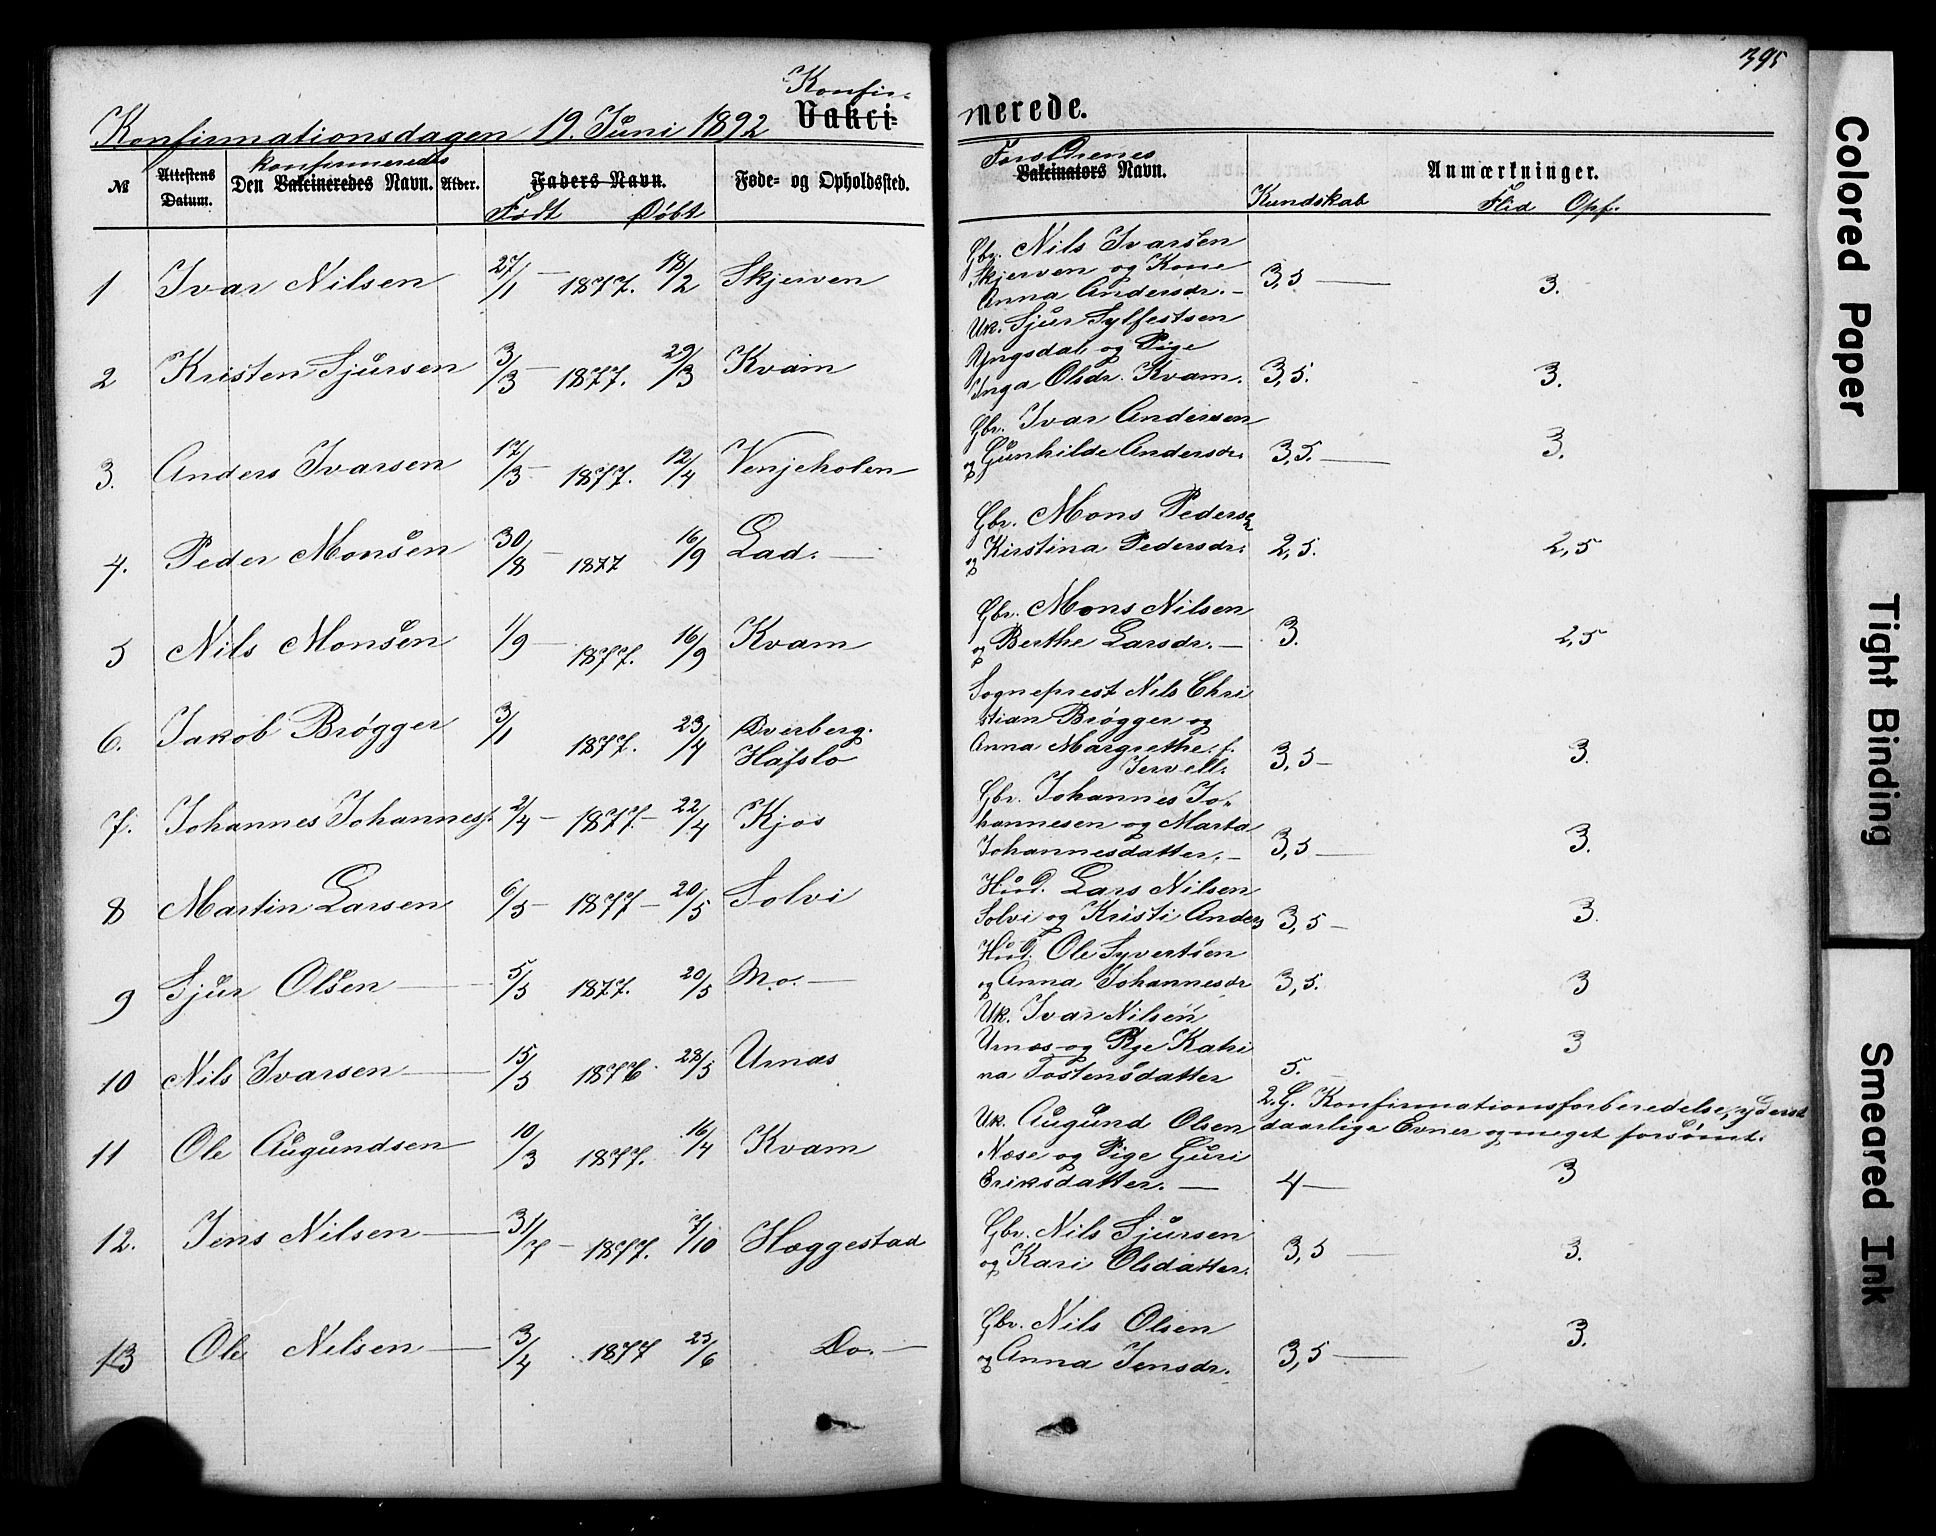 395
Konfir-
Konfirmationsdagen 19. Juni 1892 Vakci-
nerede.
№ Attestens Datum. Den konfirmeredes Vakcineredes Navn. Alder. Faders Navn. Føde- og Opholdssted.
Født Døbt
Forældrenes
Vakcinators Navn. Anmærkninger.
Kundskab Flid Opf.
1 Ivar Nilsen 27/1 - 1877. 18/2 Skjerven
Gbr. Nils Ivarsen
Skjerven og Kone
Anna Andersdr. - 3,5 — 3.
2 Kristen Sjursen 3/3 - 1877. 29/3 Kvam
Uk. Sjur Sylfestsen
Yngsdal og Pige
Inga Olsdr. Kvam. 3,5. 3.
3. Anders Ivarsen 17/3 - 1877. 12/4 Venjeholen
Gbr. Ivar Andersen
og Gunhilde Andersdr. 3,5. — 3.
4. Peder Monsen 30/8 - 1877 16/9 Lad. —
Gbr. Mons Pedersen
og Kirstina Pedersdr. 2,5. 2,5
5 Nils Monsen 1/9 - 1877. 16/9 Kvam
Gbr. Mons Nilsen
og Berthe Larsdr. — 3. 2,5
6. Jakob Brøgger 3/1 1877. 23/4 Dverberg.
Hafslo
Sogneprest Nils Chri
stian Brøgger og
Anna Margrethe f.
Jervell. 3,5 - 3.
7. Johannes Johannes. 2/4 - 1877 - 22/4 Kjos
Gbr. Johannes Jo-
hannesen og Marta
Johannesdatter. - 3,5 — 3.
8 Martin Larsen 6/5 - 1877 - 20/5 Solvi
Husd. Lars Nilsen
Solvi og Kristi Anders 3,5 - 3.
9 Sjur Olsen — 5/5 1877. 20/5 Mo. —
Husd. Ole Syvertsen
og Anna Johannesdr 3,5. 3
10 Nils Ivarsen — 15/5 1876 28/5 Urnæs
Uk. Ivar Nilsen
Urnæs og Pige Katri
na Tostensdatter 5. 3
2. G. Konfirmationsforberedelse, yderst
daarlige Evner og meget forsømt.
11 Ole Augundsen 10/3 1877. 16/4 Kvam
Uk. Augund Olsen
Næse og Pige Guri
Eriksdatter. — 4 — 3
12. Jens Nilsen — 31/7 - 1877. 7/10 Hæggestad
Gbr. Nils Sjursen
og Kari Olsdatter. 3,5 — 3.
13 Ole Nilsen — 3/4 1877 25/6 Do. —
Gbr. Nils Olsen
og Anna Jensdr. 3,5 — 3.
Colored Paper
Tight Binding
Smeared Ink